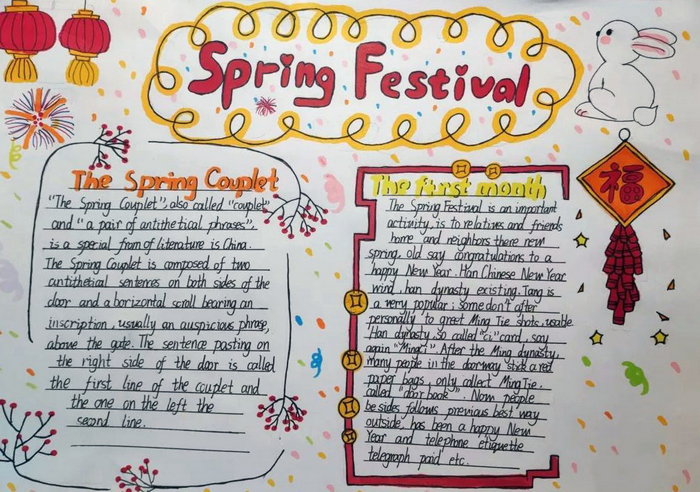 Spring Festival
The Spring Couplet
"The Spring Couplet", also called "couplet"
and "a pair of antithetical phrases",
is a special from of literature is China.
The Spring Couplet is composed of two
antithetical sentences on both sides of the
door and a borizontal scroll bearing an
inscription, usually an auspicious phrase,
above the gate. The sentence pasting on
the right side of the door is called
the first line of the couplet and
the one on the left the
second line.
The first month
The Spring Festival is an important
activity, is to relatives and friends
home and neighbors there new
spring, old say congratulations to a
happy New Year. Han Chinese New Year
wind, han dynasty existing. Tang is
a very popular; some don't after
personally to greet Ming Tie shots, usable.
Han dynasty so called "ci" card, say
again "MingCi". After the Ming dynasty,
many people in the doorway stick a red
paper bags, only collect Ming Tie.
called "door book". Now people
besides follows previous best way
outside, has been a happy New
Year and telephne etiquette
telegraph paid etc.
福